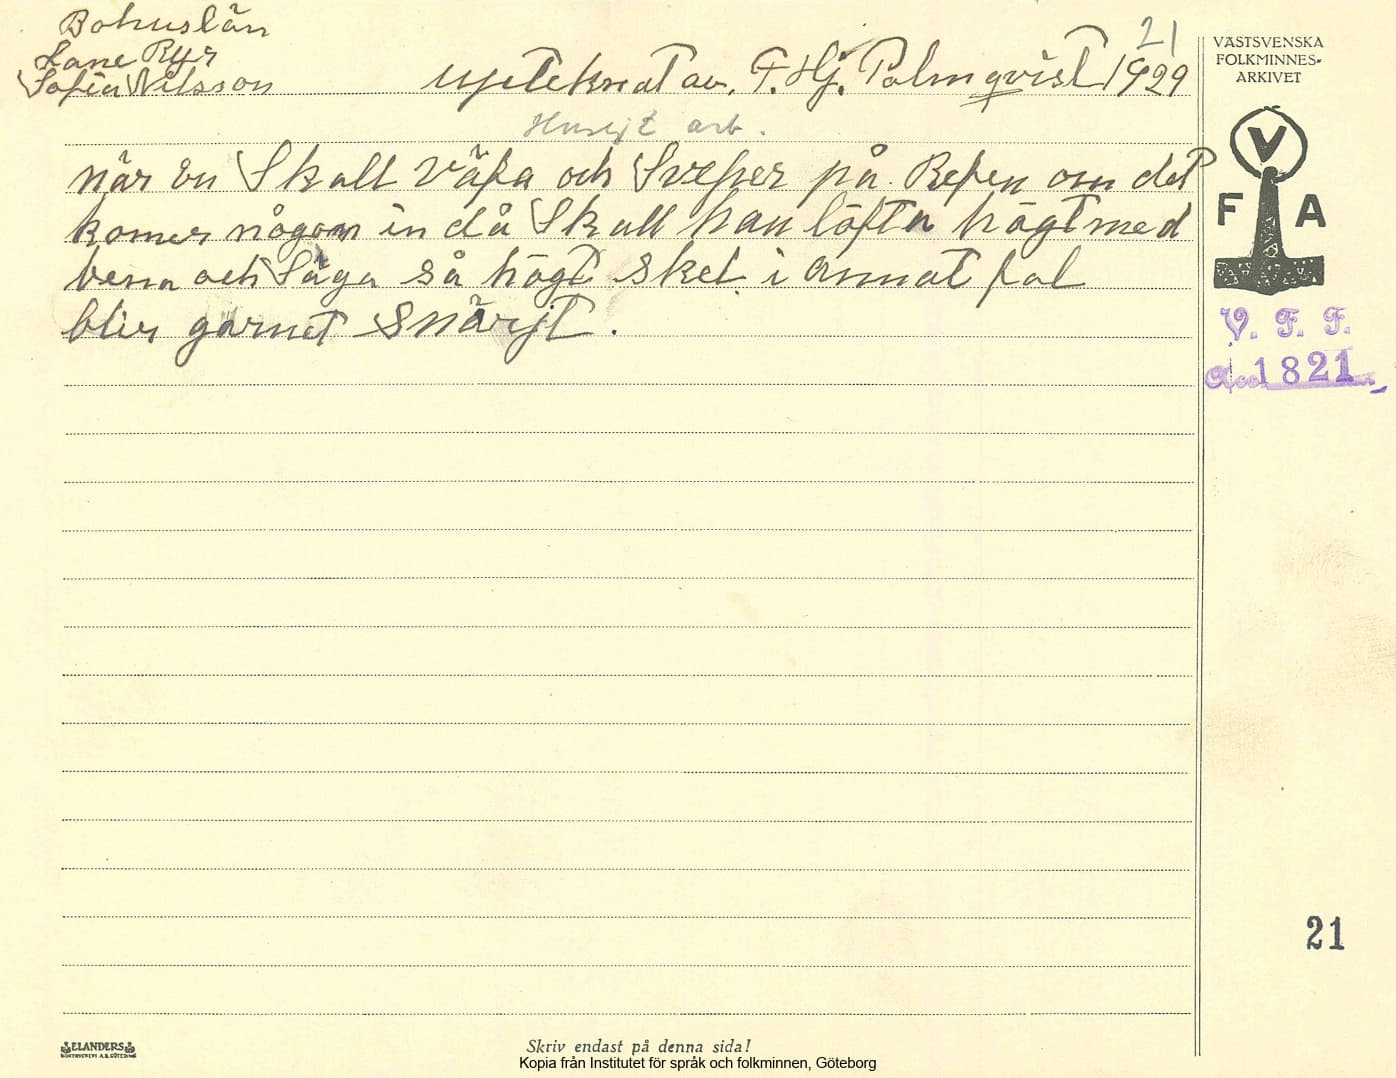 Bohuslän
Lane Ryr
Sofia Nilsson
21
upteknat av. F. Hj. Palmqvist 1929
Husljt arb.
när en Skall väfa och Sveper på Refen om det
komer någon in då Skall han löfta högt med
bena och Säga så högt skel i annat fal
blir garnet snärjt.
VÄSTSVENSKA
FOLKMINNES-
ARKIVET
V
F A
V. F. F.
Acc 1821
21
ELANDERS
BOKTRYCKERI A.B. GÖTEBORG
Skriv endast på denna sida!
Kopia från Institutet för språk och folkminnen, Göteborg